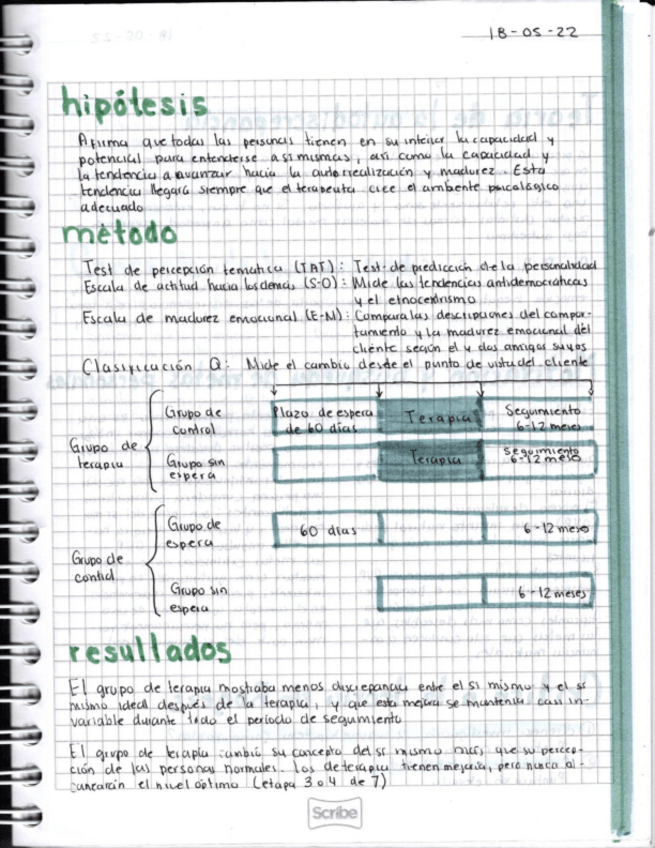 18-05-22
hipótesis
Afirma que todas las personas tienen en su interior la capacidad y
potencial para entenderse a si mismas, asi como la capacidad y
la tendencia a avanzar hacia la autorrealización y madurez. Esta
tendencia llegará siempre que el terapeuta cree el ambiente psicológico
adecuado
método
Test de percepción tematica (TAT): Test de predicción de la personalidad
Escala de actitud hacia los demás (S-O): Mide las tendencias antidemocraticas
y el etnocentrismo
Escala de madurez emocional (E-M): Compara las descripciones del compor-
tamiento y la madurez emocional del
cliente según el y dos amigos suyos
Clasificación Q: Mide el cambio desde el punto de vista del cliente
Grupo de terapia
Grupo de control
Plazo de espera de 60 días
Terapia
Seguimiento 6-12 meses
Grupo sin espera
Terapia
Seguimiento 6-12 meses
Grupo de control
Grupo de espera
60 días
6-12 meses
Grupo sin espera
6-12 meses
resultados
El grupo de terapia mostraba menos discrepancias entre el si mismo y el si
mismo ideal después de la terapia, y que esta mejora se mantenia casi in-
variable durante todo el periodo de seguimiento
El grupo de terapia cambió su concepto del si mismo más que su percep-
ción de las personas normales. Los de terapia tienen mejoria, pero nunca al-
canzarán el nivel óptimo (etapa 3 o 4 de 7)
Scribe